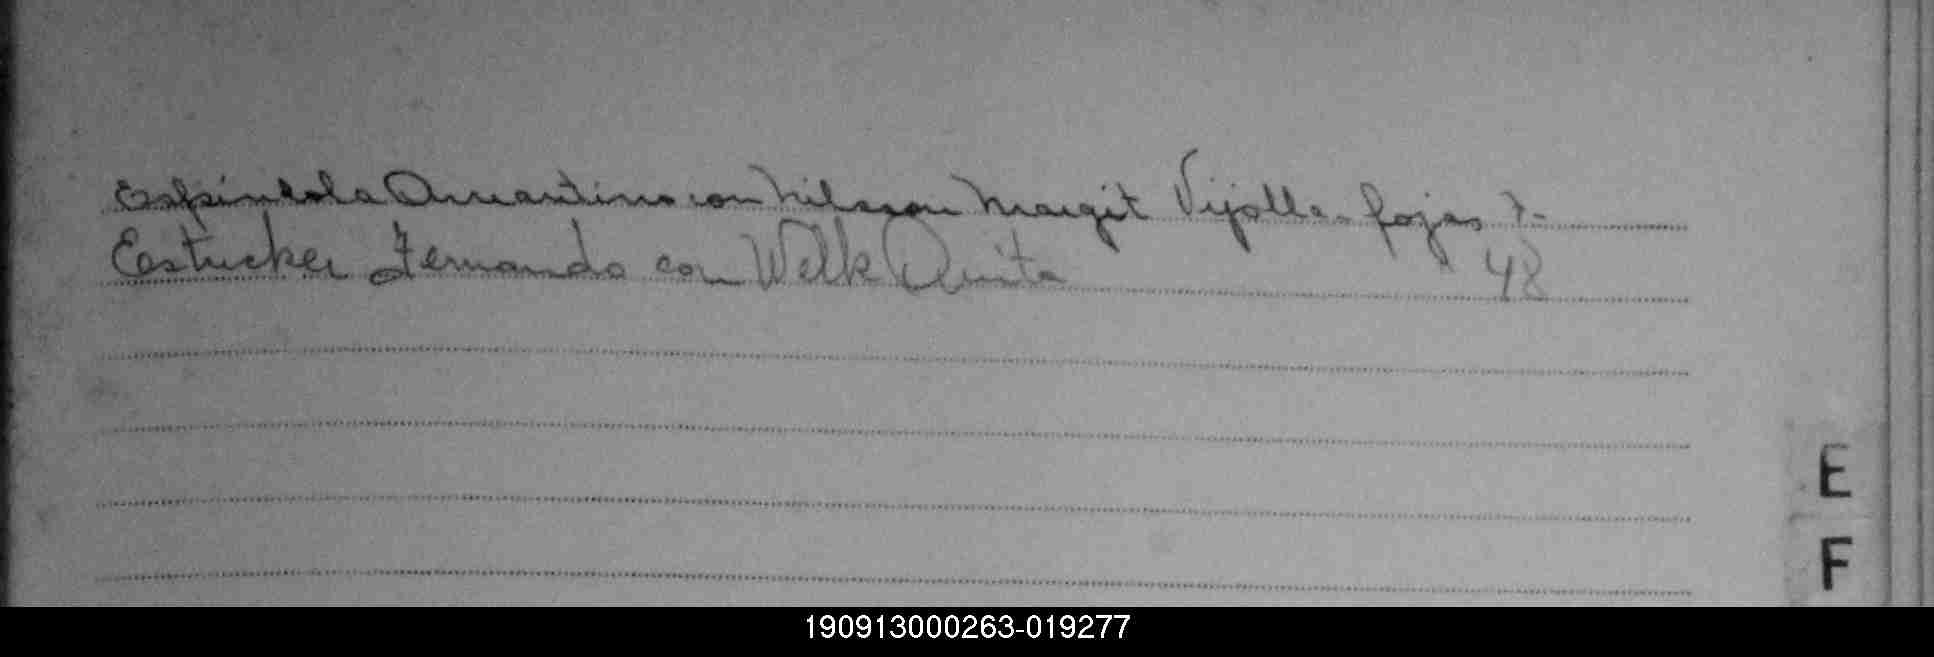 Espindola Amantino con Nilsson Margit Vijolla - fojas 7 -
Estucker Fernando con Welk Anita 48
E
F
190913000263-019277